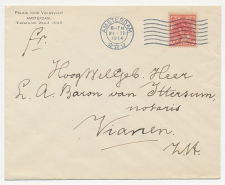 PALEIS VOOR VOLKSVLIJT
AMSTERDAM
AMSTERDAM
1914
HoogWelGeb. Heer
L. A. Baron van Ittersum,
notaris
Vianen
Z.H.